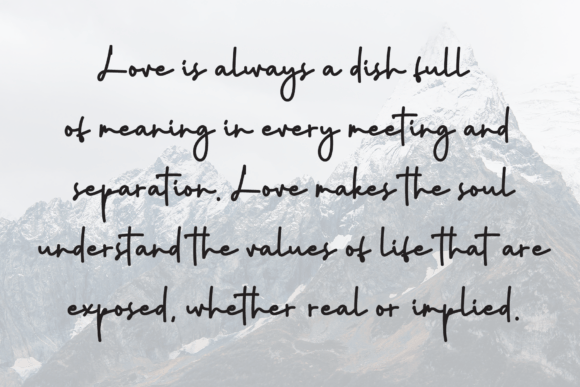 Love is always a dish full
of meaning in every meeting and
separation. Love makes the soul
understand the values of life that are
exposed, whether real or implied.